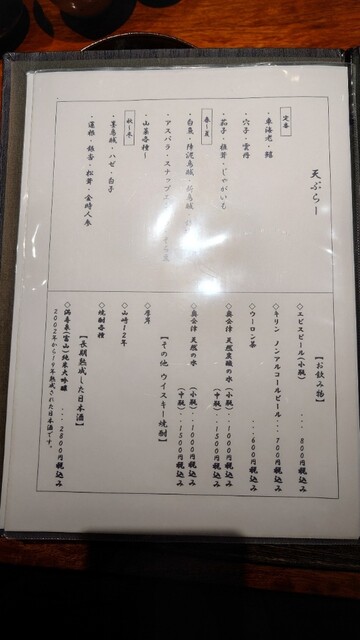 天ぷらー
定番
・車海老・鱚
・穴子・雲丹
・茄子・椎茸・じゃがいも
春〜夏
・白魚・稚鮎
・アスパラ・スナップ
・山菜各種〜
秋〜冬
・墨烏賊・ハゼ・白子
・蓮根・銀杏・松茸・金時人参
【お飲み物】
◇エビスビール(小瓶) ... 800円税込み
◇キリン ノンアルコールビール... 700円税込み
◇ウーロン茶 ...600円税込み
◇奥会津 天然炭酸の水 (小瓶)...1000円税込み
(中瓶)...1500円税込み
◇奥会津 天然の水 (小瓶)...1000円税込み
(中瓶)...1500円税込み
【その他 ウイスキー焼酎】
◇山崎12年
◇焼酎各種
【長期熟成した日本酒】
◇満寿泉(富山)純米大吟醸 ...2800円税込み
2002年から19年熟成された日本酒です。